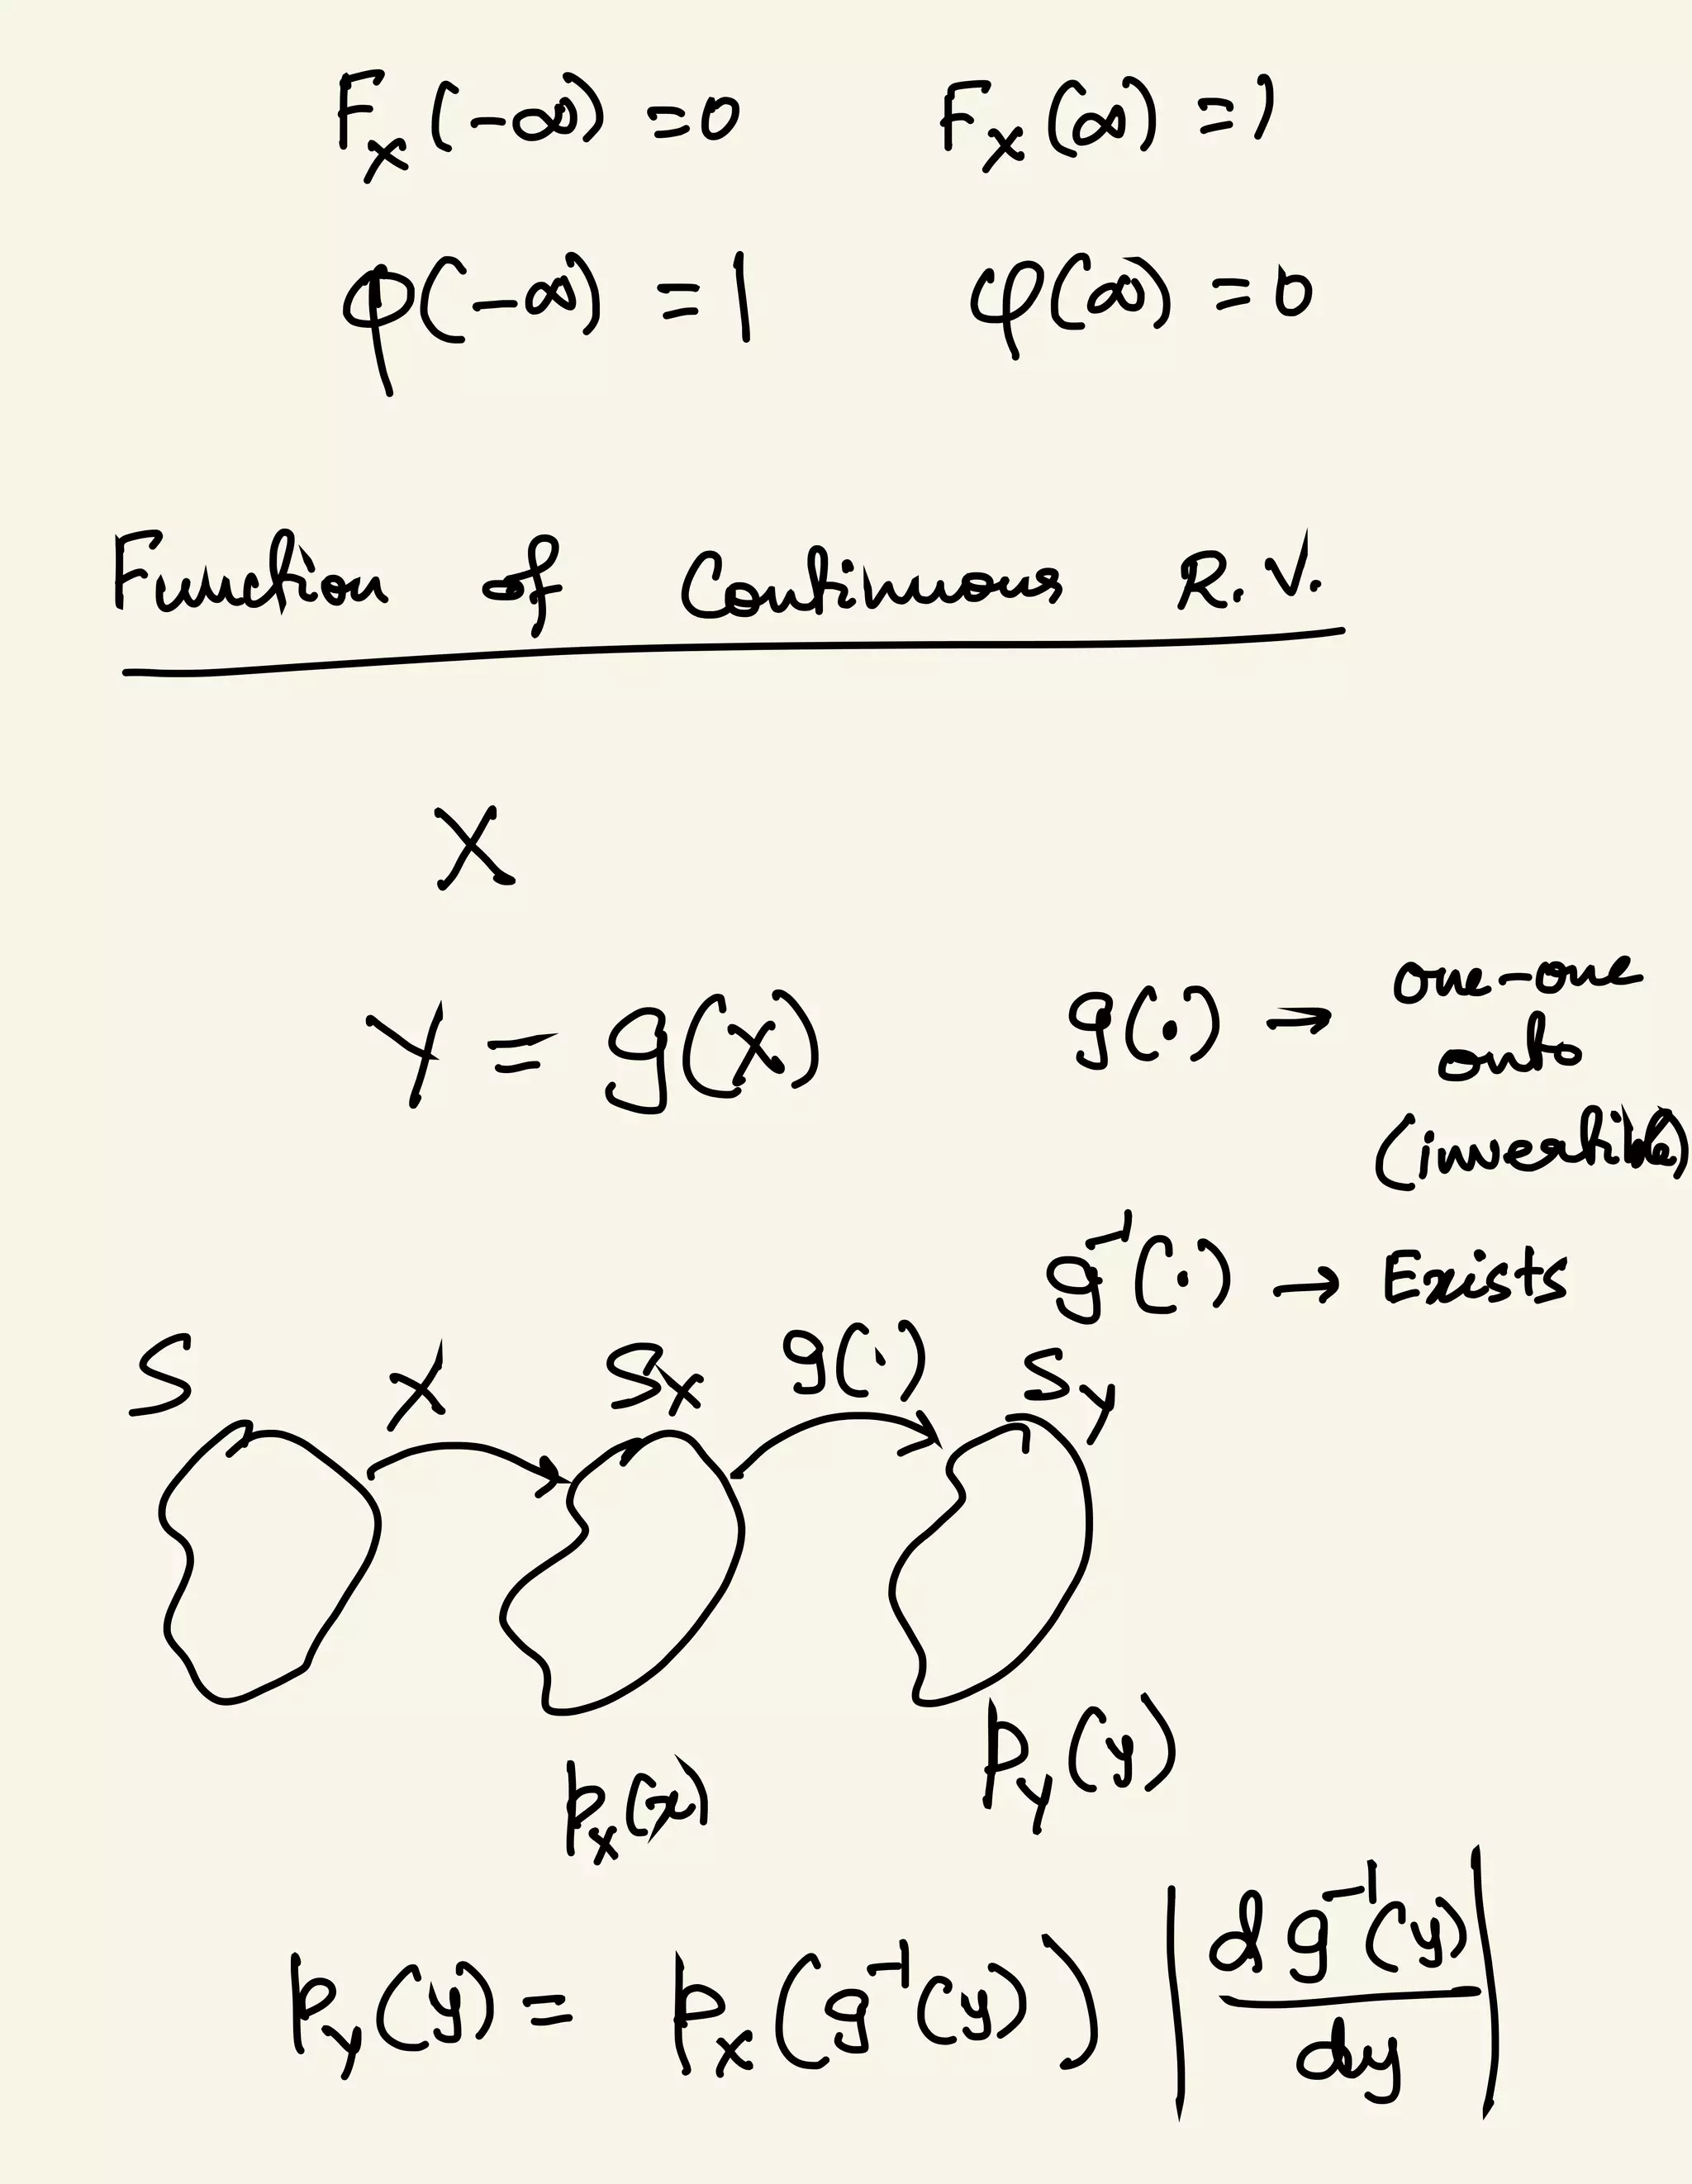 F_X(-∞) = 0 F_X(∞) = 1
φ(-∞) = 1 φ(∞) = 0
Function of Continuous R.V.
X
Y = g(X) g(·) → one-one
onto
(invertible)
g⁻¹(·) → Exists
S X S_X g(·) S_Y
p_Y(y)
p_X(x)
p_Y(y) = p_X(g⁻¹(y)) | d g⁻¹(y) / dy |